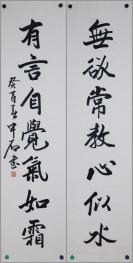 無欲常教心似水
有言自覺氣如霜
癸酉春中石書